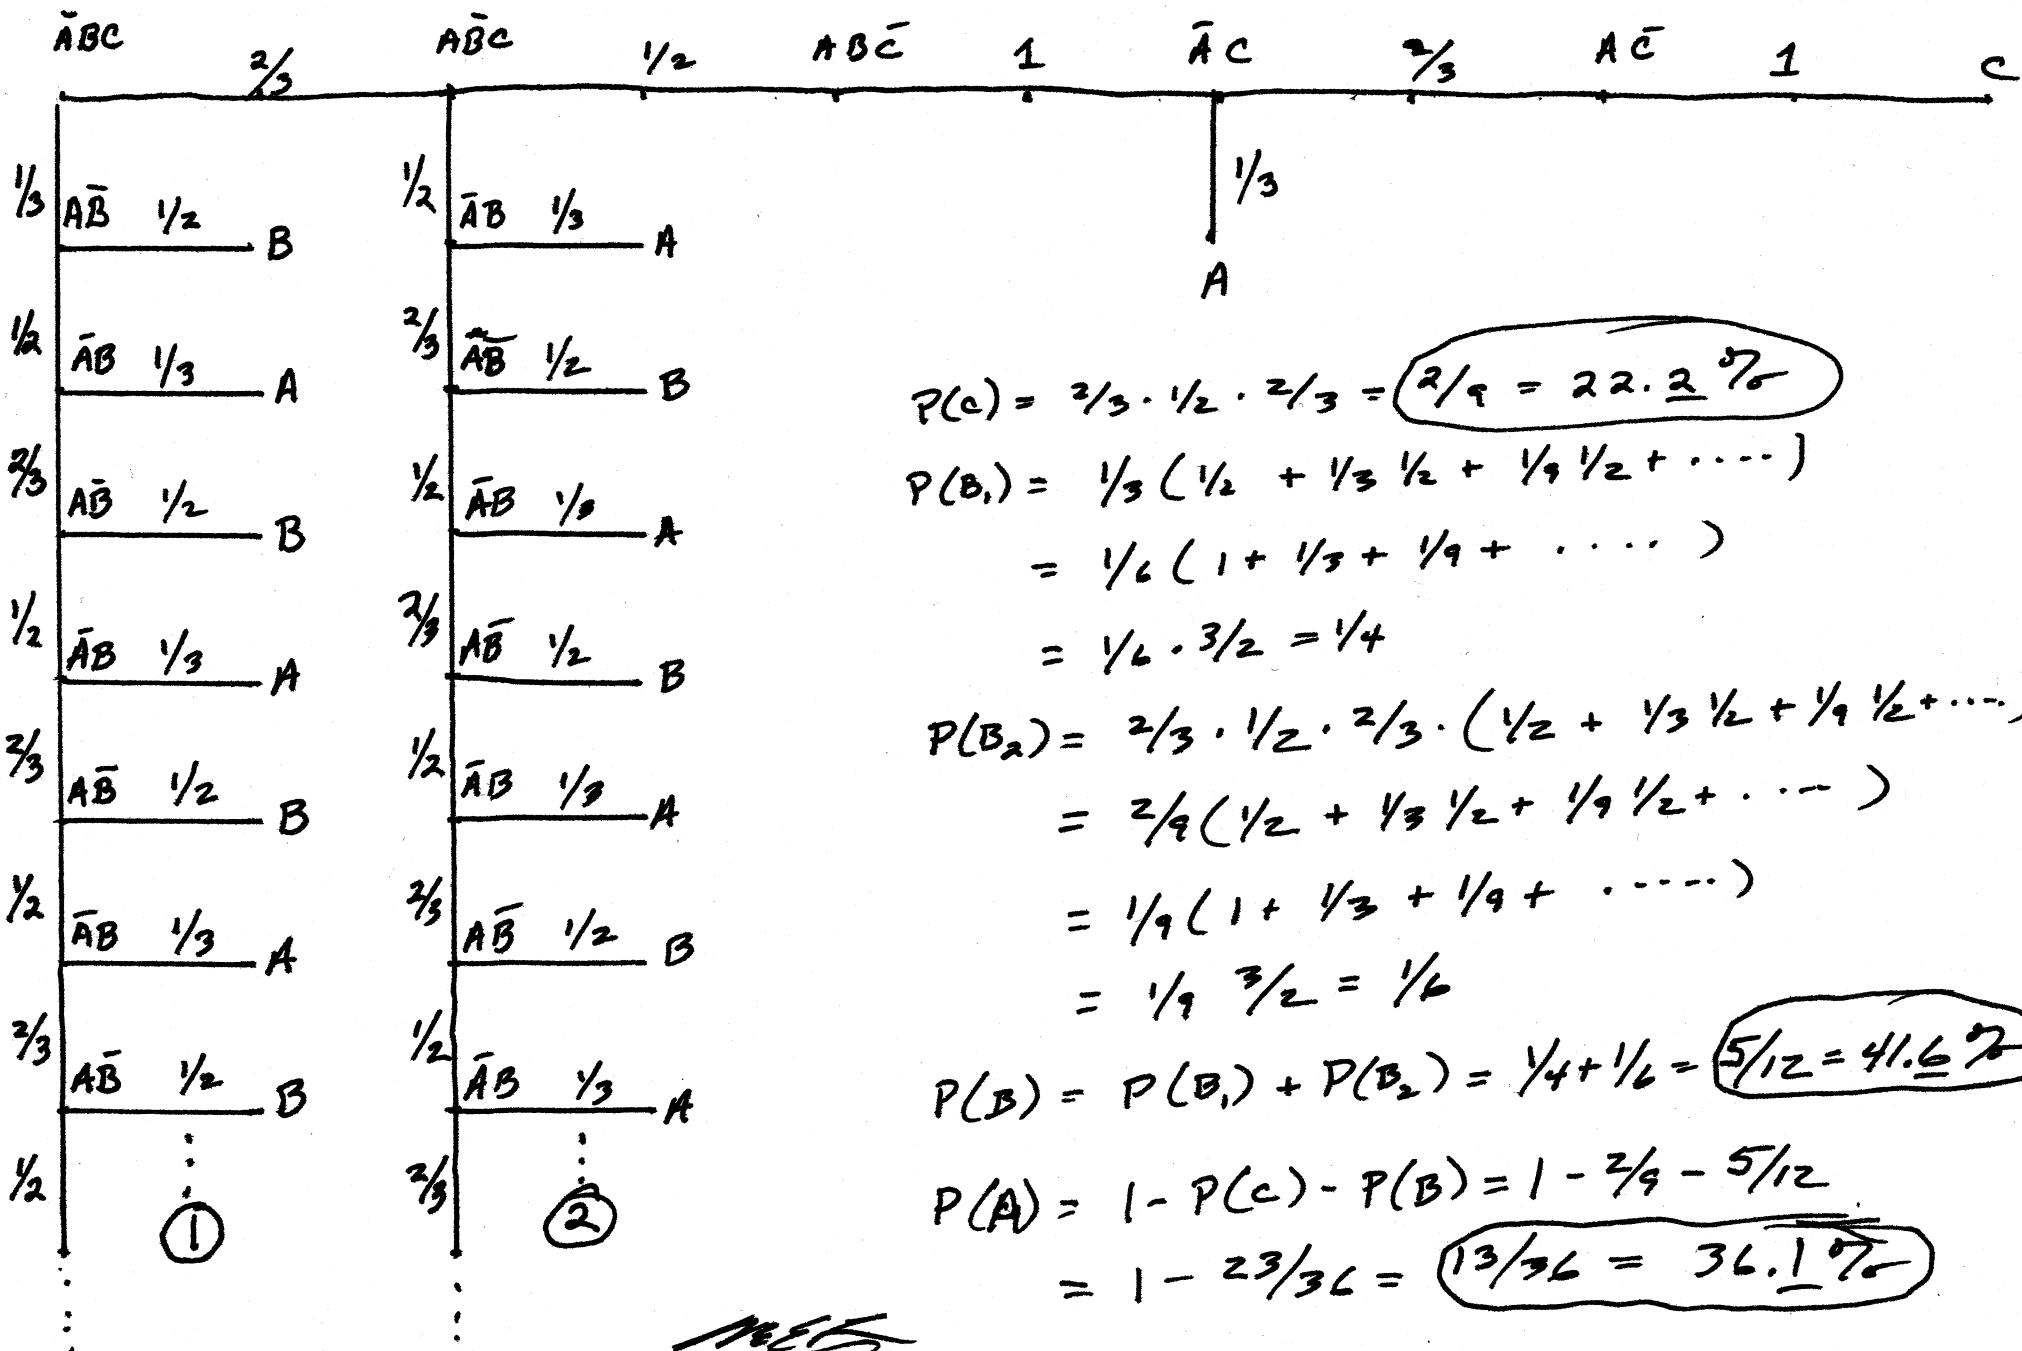 ĀBC 2/3 AB̄C 1/2 ABC̄ 1 ĀC 2/3 AC̄ 1 C
1/3 AB̄ 1/2 B
1/2 ĀB 1/3 A
2/3 AB̄ 1/2 B
1/2 ĀB 1/3 A
2/3 AB̄ 1/2 B
1/2 ĀB 1/3 A
2/3 AB̄ 1/2 B
1/2
①
1/2 ĀB 1/3 A
2/3 AB̄ 1/2 B
1/2 ĀB 1/3 A
2/3 AB̄ 1/2 B
1/2 ĀB 1/3 A
2/3 AB̄ 1/2 B
1/2 ĀB 1/3 A
2/3
②
1/3
A
P(C) = 2/3 · 1/2 · 2/3 = 2/9 = 22.2 %
P(B₁) = 1/3 ( 1/2 + 1/3 1/2 + 1/9 1/2 + ····· )
= 1/6 ( 1 + 1/3 + 1/9 + ····· )
= 1/6 · 3/2 = 1/4
P(B₂) = 2/3 · 1/2 · 2/3 · ( 1/2 + 1/3 1/2 + 1/9 1/2 + ····· )
= 2/9 ( 1/2 + 1/3 1/2 + 1/9 1/2 + ····· )
= 1/9 ( 1 + 1/3 + 1/9 + ······ )
= 1/9 3/2 = 1/6
P(B) = P(B₁) + P(B₂) = 1/4 + 1/6 = 5/12 = 41.6 %
P(A) = 1 - P(C) - P(B) = 1 - 2/9 - 5/12
= 1 - 23/36 = 13/36 = 36.1 %